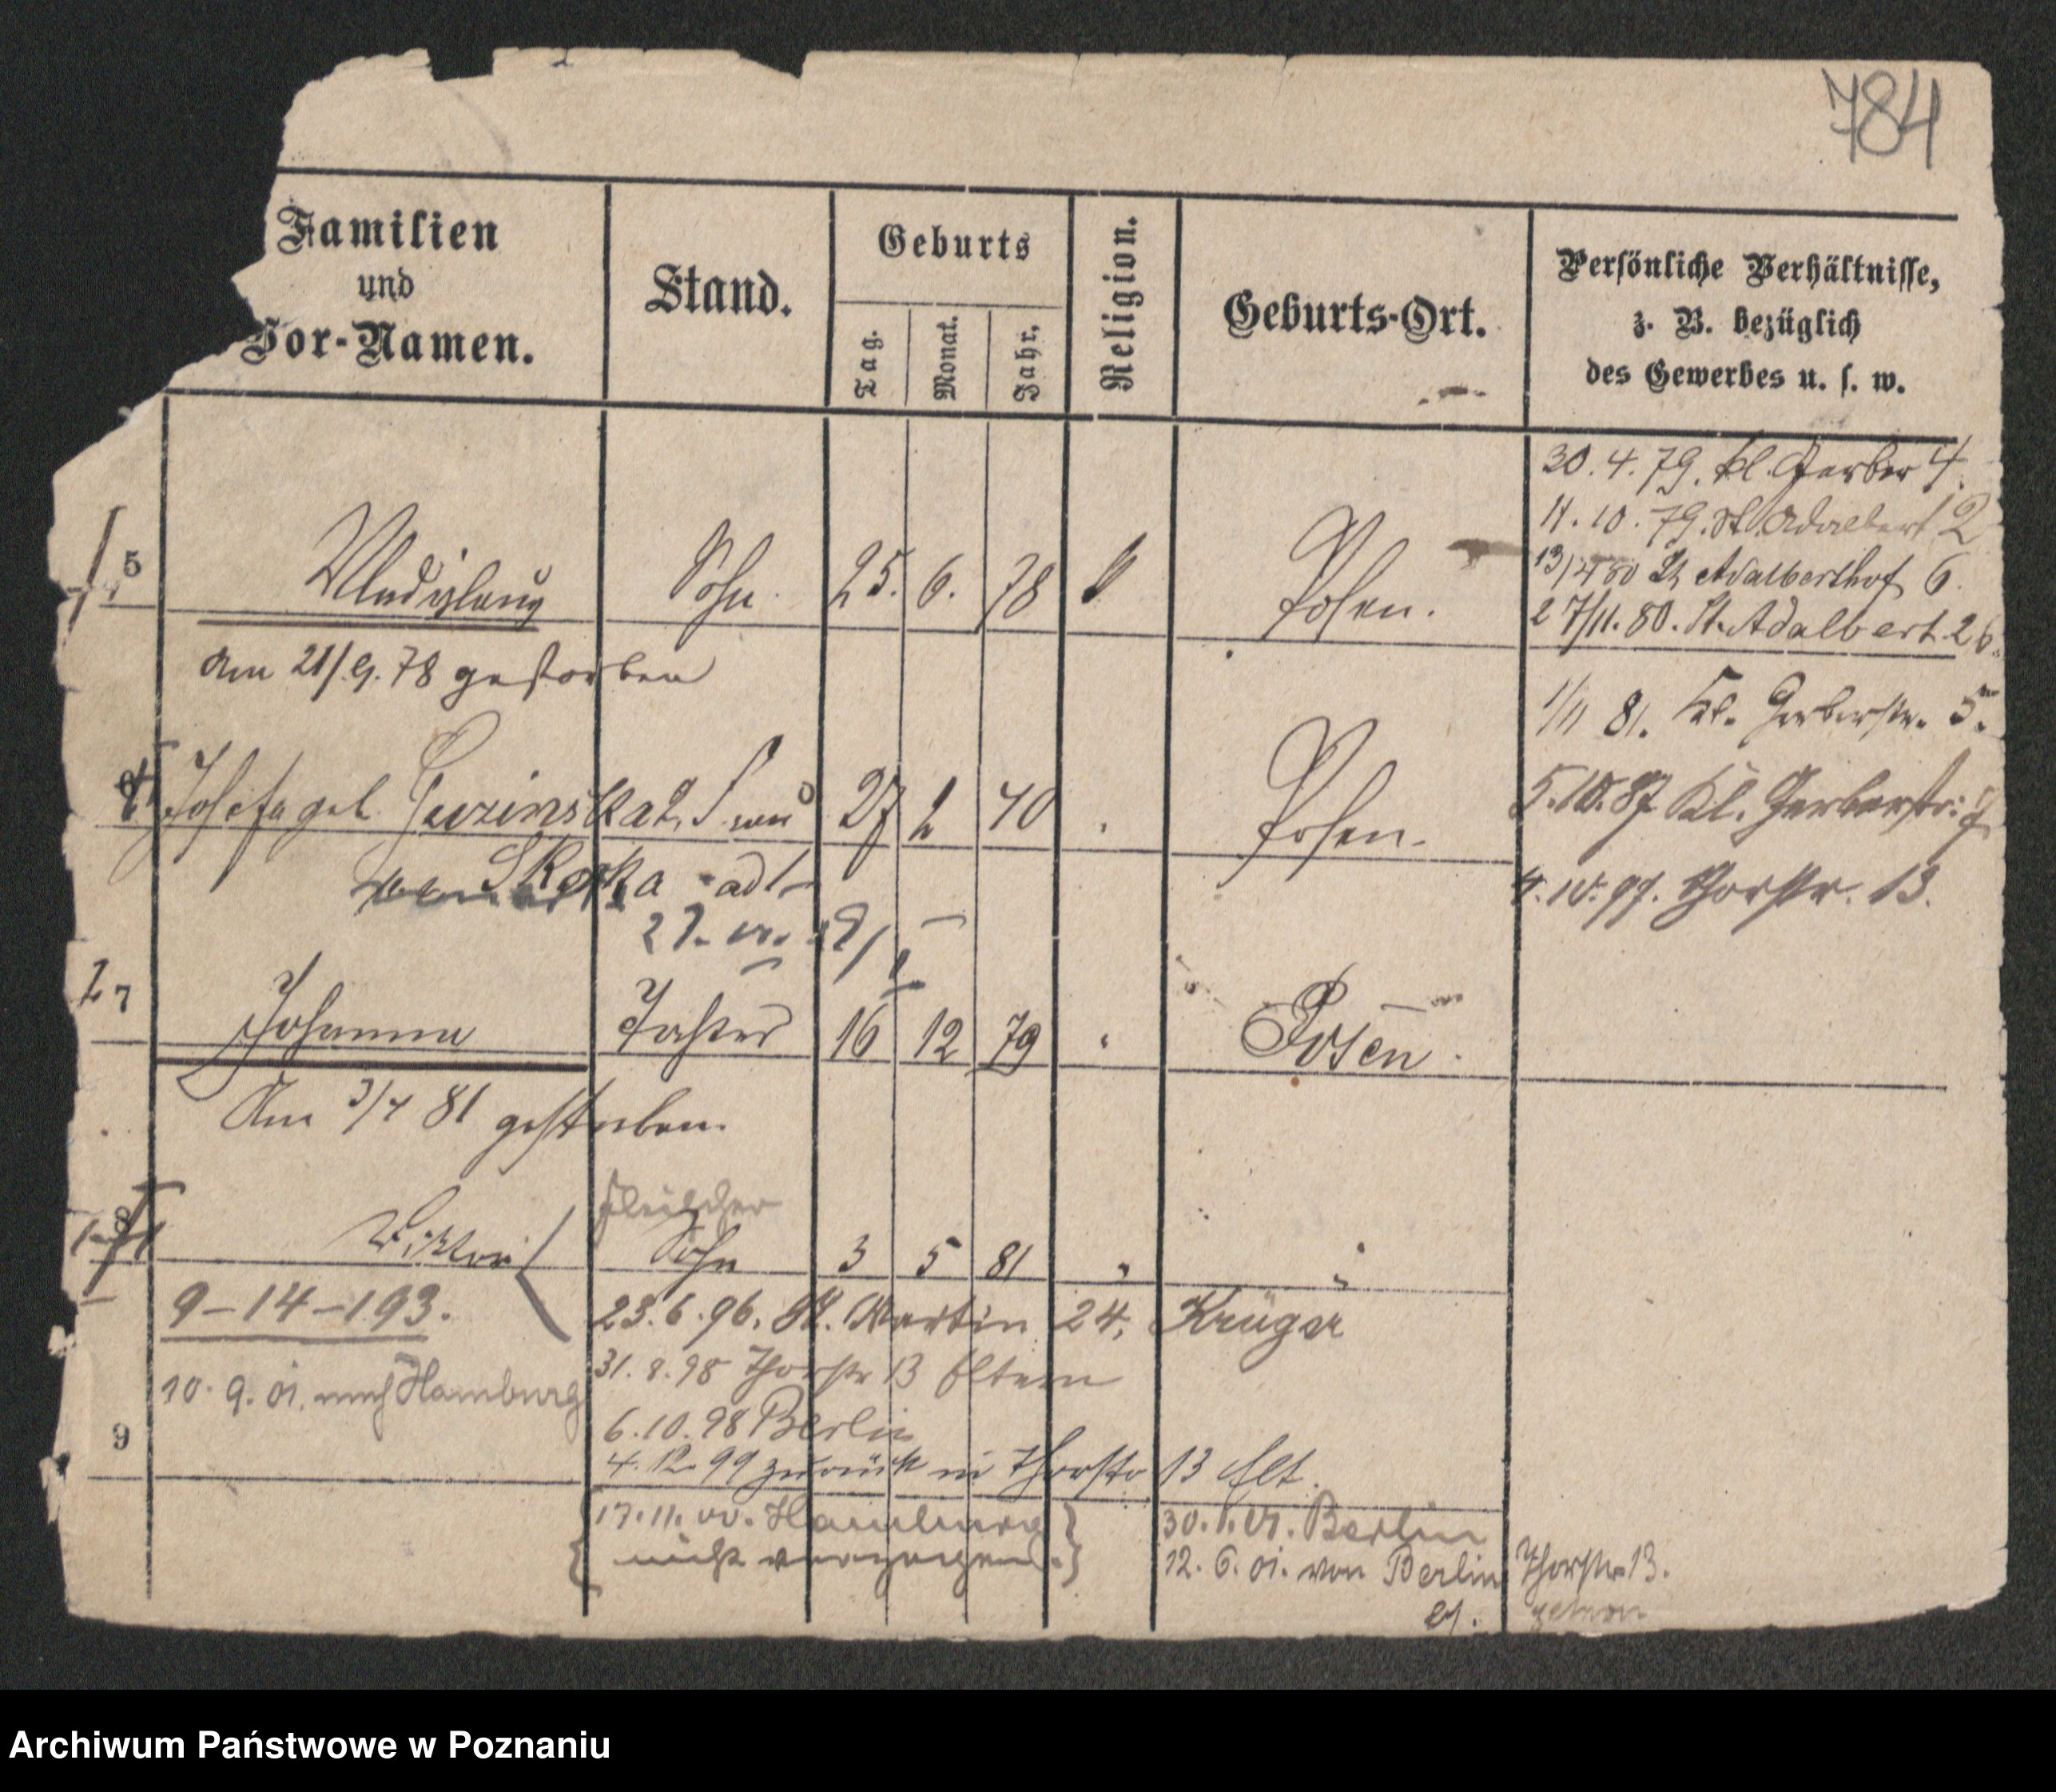 784
Familien
und
Vor-Namen.
Stand.
Geburts
Tag.
Monat.
Jahr.
Religion.
Geburts-Ort.
Persönliche Verhältnisse,
z. B. bezüglich
des Gewerbes u. s. w.
30. 4. 79. kl. Gerber 4.
11. 10. 79. St. Adalbert 2
13/4 80 St Adalberthof 6.
27/11. 80. St. Adalbert 26.
5 Wladislaus Sohn. 25. 6. 78 Posen.
am 21/9. 78 gestorben
1/11 81. Kl. Gerberstr. 5.
5. 10. 87 Kl. Gerberstr. 7
4. 10. 97. Thorstr. 13.
Josefa geb. 27 2 40 Posen.
Skorka
7 Johanna Tochter 16 12 79 Posen.
Am 3/4 81 gestorben.
Fleischer
8 Sohn 3 5 81
9-14-193.
23. 6. 96. St. Martin 24, Krüger
31. 8. 98 Thorstr 13 Eltern
10. 9. 01. nach Hamburg
6. 10. 98 Berlin
9
4. 12 99 zurück in Thorstr 13 Elt.
17. 11. 00. Hamburg
nicht verzogen.
30. 1. 01. Berlin
12. 6. 01. von Berlin Thorstr. 13.
Archiwum Państwowe w Poznaniu